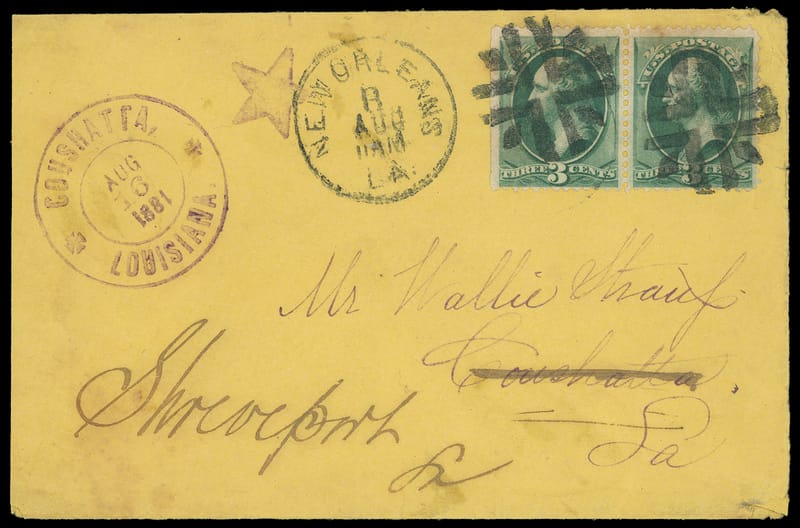 COUSHATTA, LOUISIANA.
AUG
16
1881
NEW ORLEANS
R
AUG
LA.
U.S. POSTAGE
THREE 3 CENTS
THREE 3 CENTS
Mr Wallie
Coushatta,
La
Shreveport
La